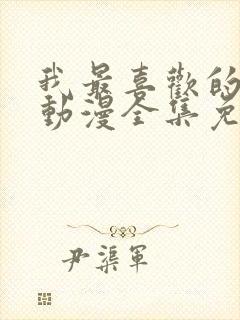 我最喜歡的
動漫全集免
尹渠軍